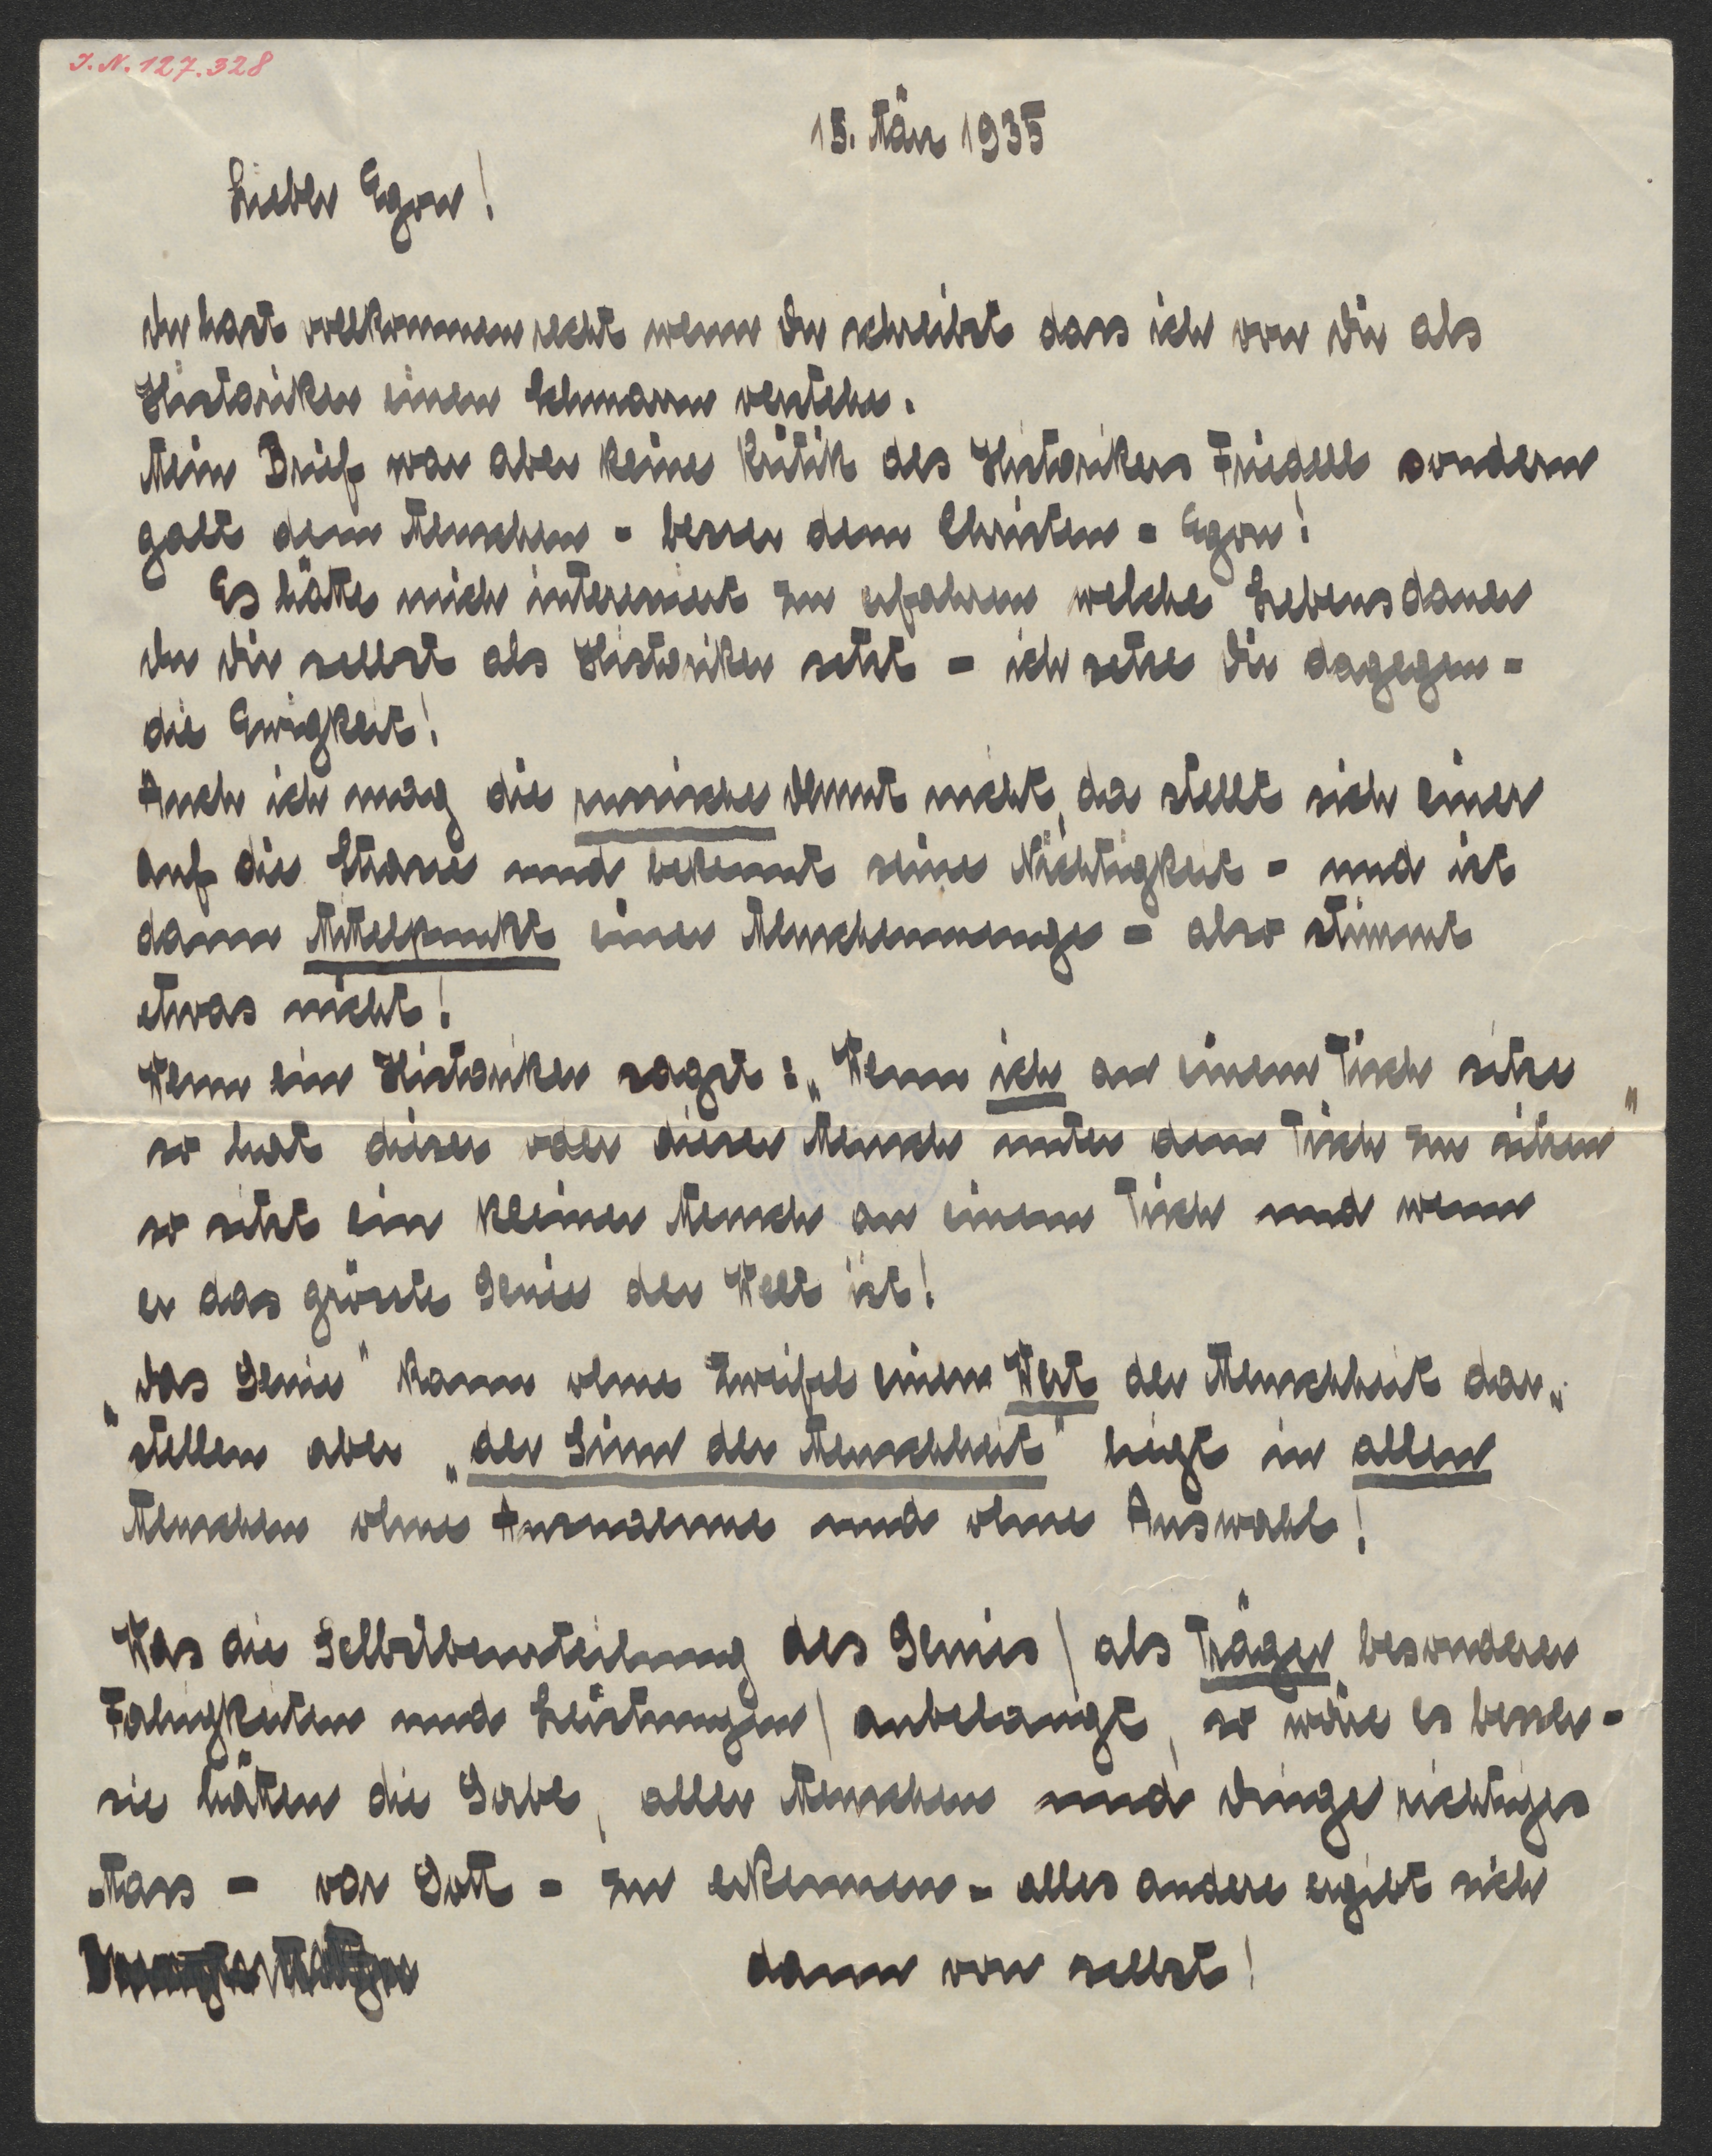 I.N. 127.328
15. März 1935
Lieber Egon!
Du hast vollkommen recht wenn Du schreibst dass ich von Dir als
Historiker einen Schmarrn verstehe.
Mein Brief war aber keine Kritik des Historikers Friedell sondern
galt dem Menschen - besser dem Christen - Egon!
Es hätte mich interessiert zu erfahren welche Lebensdauer
Du Dir selbst als Historiker setzt - ich setze Dir dagegen -
die Ewigkeit!
Auch ich mag die russische Demut nicht, da stellt sich einer
auf die Strasse und bekennt seine Nichtigkeit - und ist
dann Mittelpunkt einer Menschenmenge - also stimmt
etwas nicht!
Wenn ein Historiker sagt: „Wenn ich an einem Tisch sitze
so hat dieser oder dieser Mensch unter dem Tisch zu sitzen"
so sitzt ein kleiner Mensch an einem Tisch und wenn
er das grösste Genie der Welt ist!
„Das Genie" kann ohne Zweifel einen Wert der Menschheit dar„
stellen aber „der Sinn der Menschheit" liegt in allen
Menschen ohne Ausnahme und ohne Auswahl!
Was die Selbstbeurteilung des Genies / als Träger besonderer
Fähigkeiten und Leistungen / anbelangt, so wäre es besser -
sie hätten die Gabe, aller Menschen und Dinge richtiges
Mass - vor Gott - zu erkennen - alles andere ergibt sich
dann von selbst!